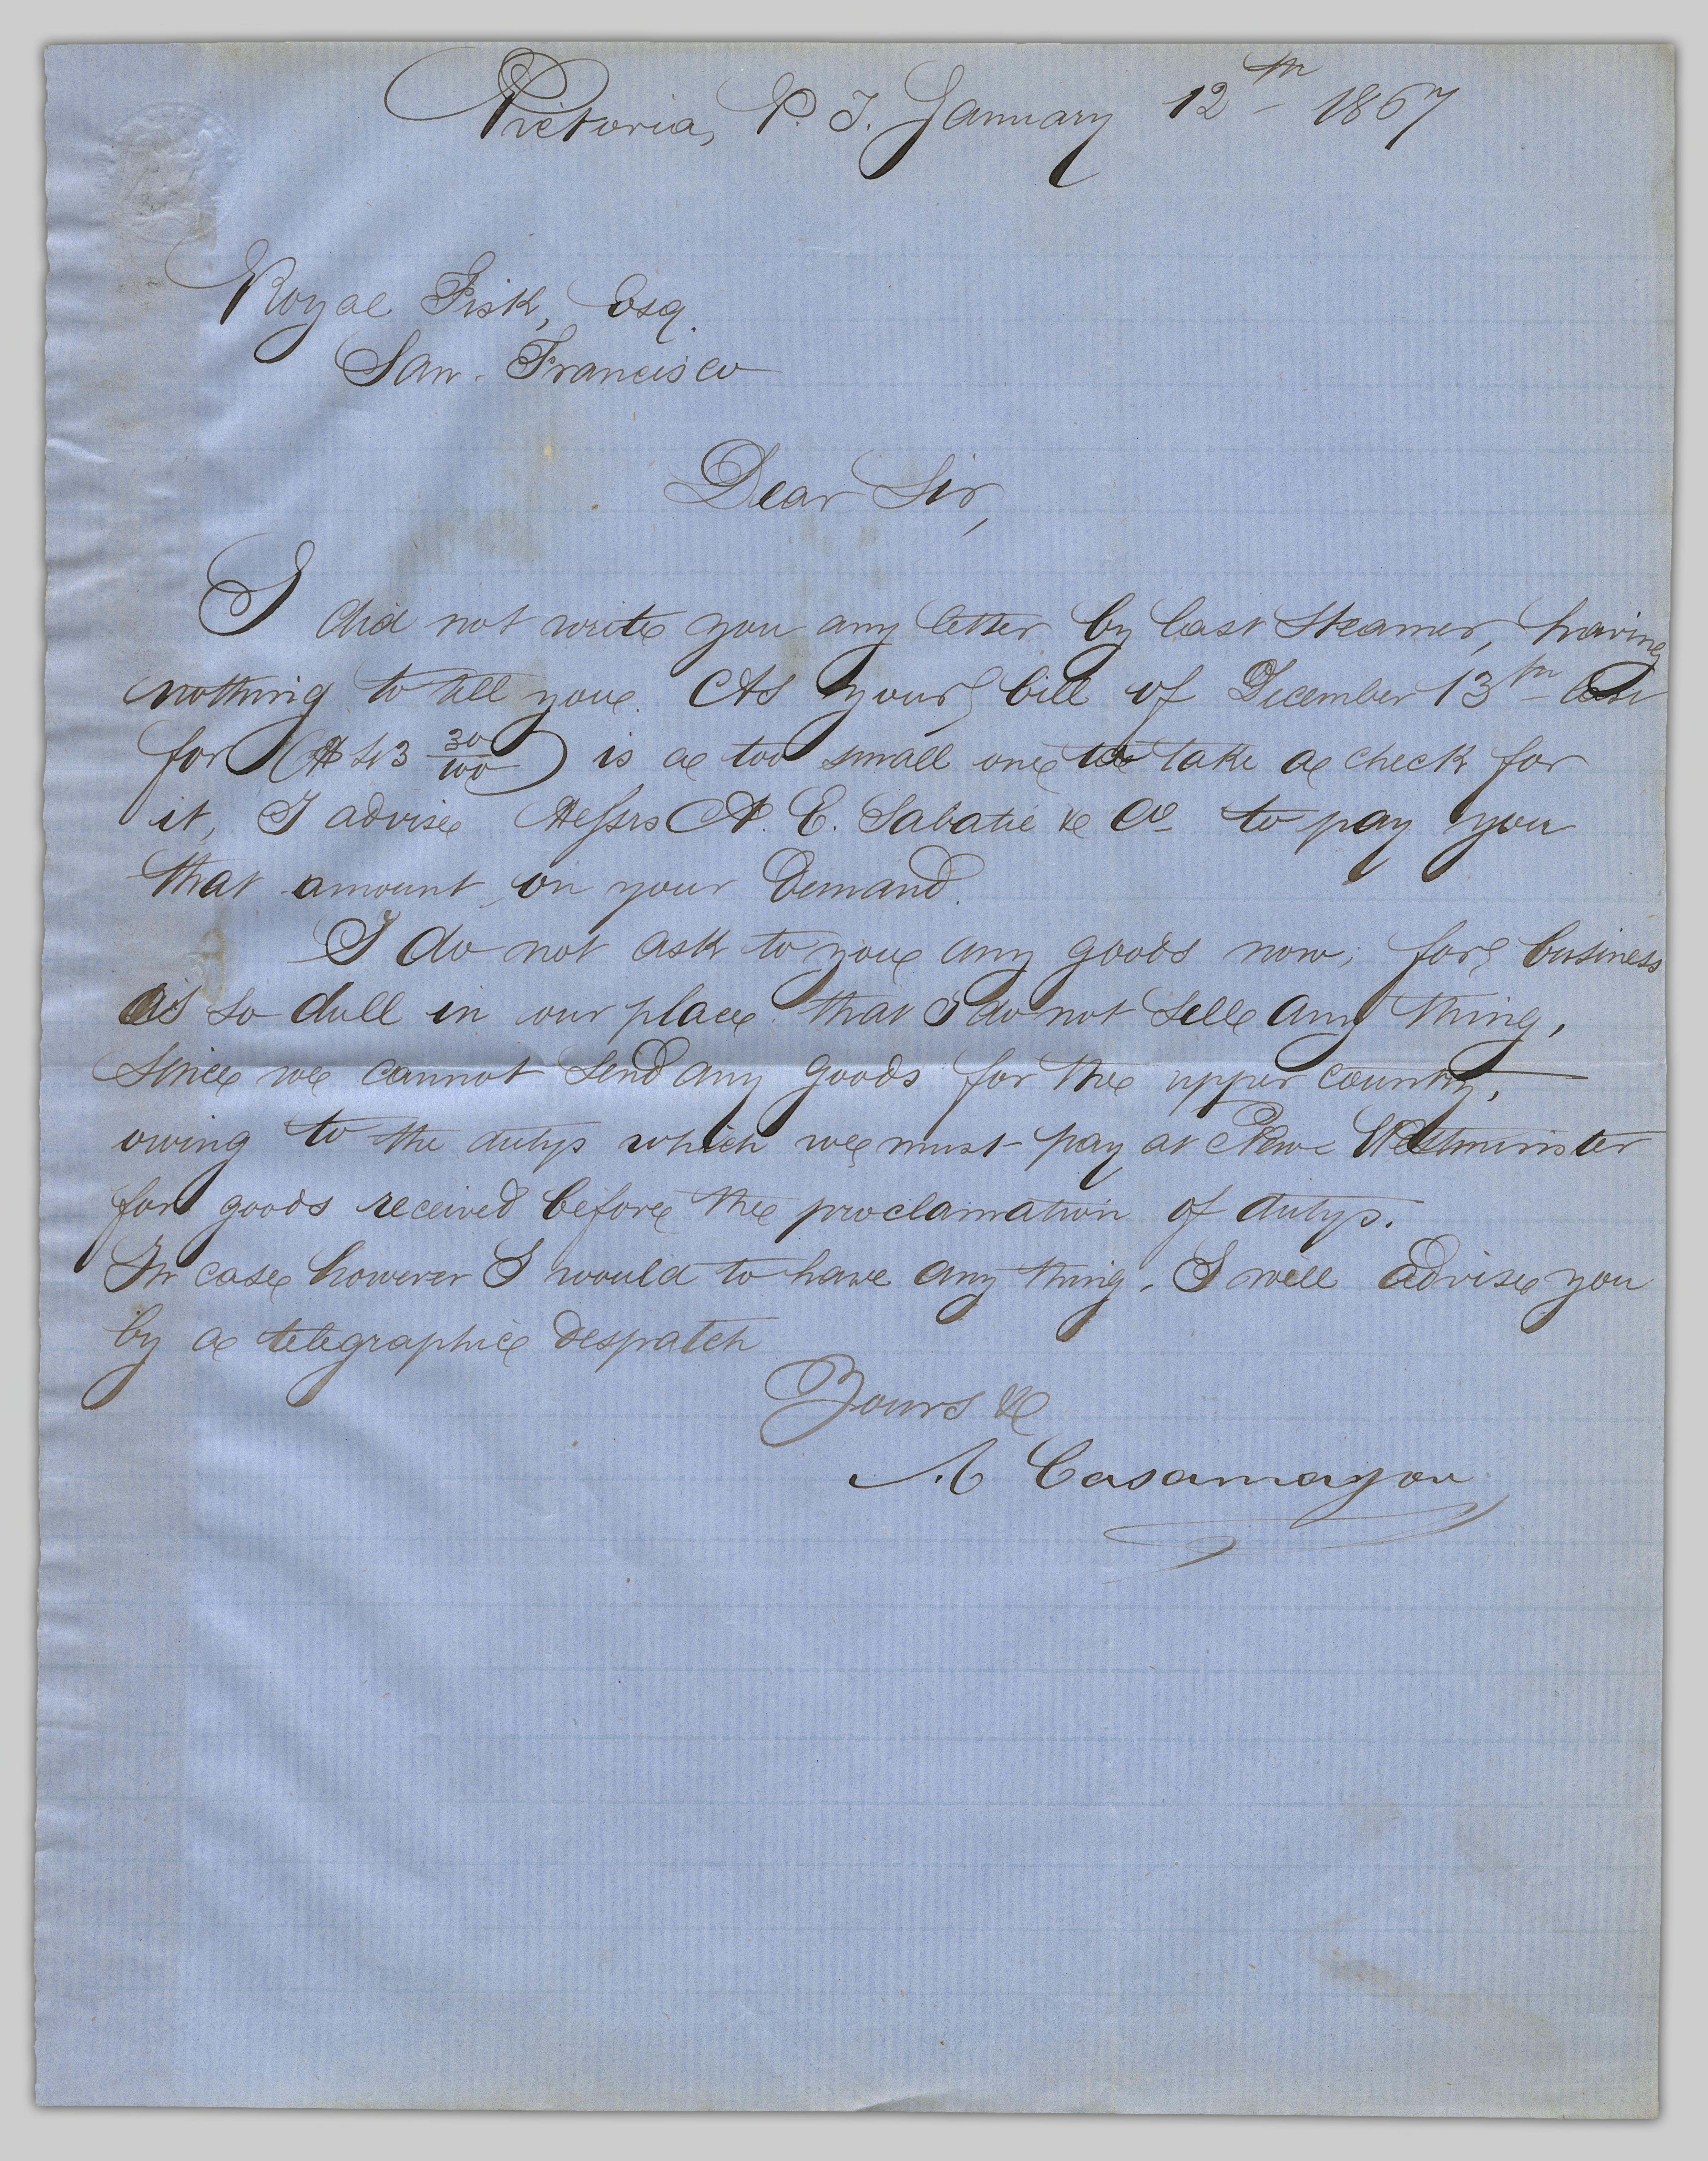 Victoria, V. I. January 12th 1867
Royal Fisk, Esq.
San Francisco
Dear Sir,
I did not write you any letter by last Steamer, having
nothing to tell you. As your bill of December 13th last
for 30/100) is a too small one to take a check for
it, I advise Messrs A. E. Sabatié & Co to pay you
that amount, on your Demand.
I do not ask to you any goods now; for business
is so dull in our place that I do not sell any thing,
since we cannot send any goods for the upper country,
owing to the dutys which we must pay at New Westminster
for goods received before the proclamation of dutys.
In case however I would to have any thing, I will advise you
by a telegraphic despatch
Yours &c
A Casamayou